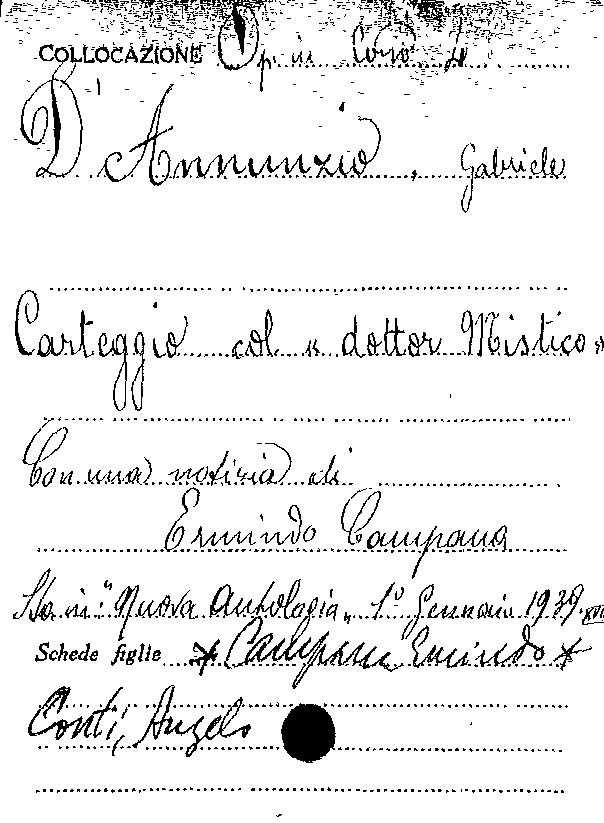 COLLOCAZIONE Op. in Corso 4
D'Annunzio, Gabriele
Carteggio col « dottor Mistico »
Con una notizia di
Ermindo Campana
Sta in: "Nuova Antologia„ 1° Gennaio 1939. XVII
Schede figlie * Campana Ermindo *
Conti, Angelo